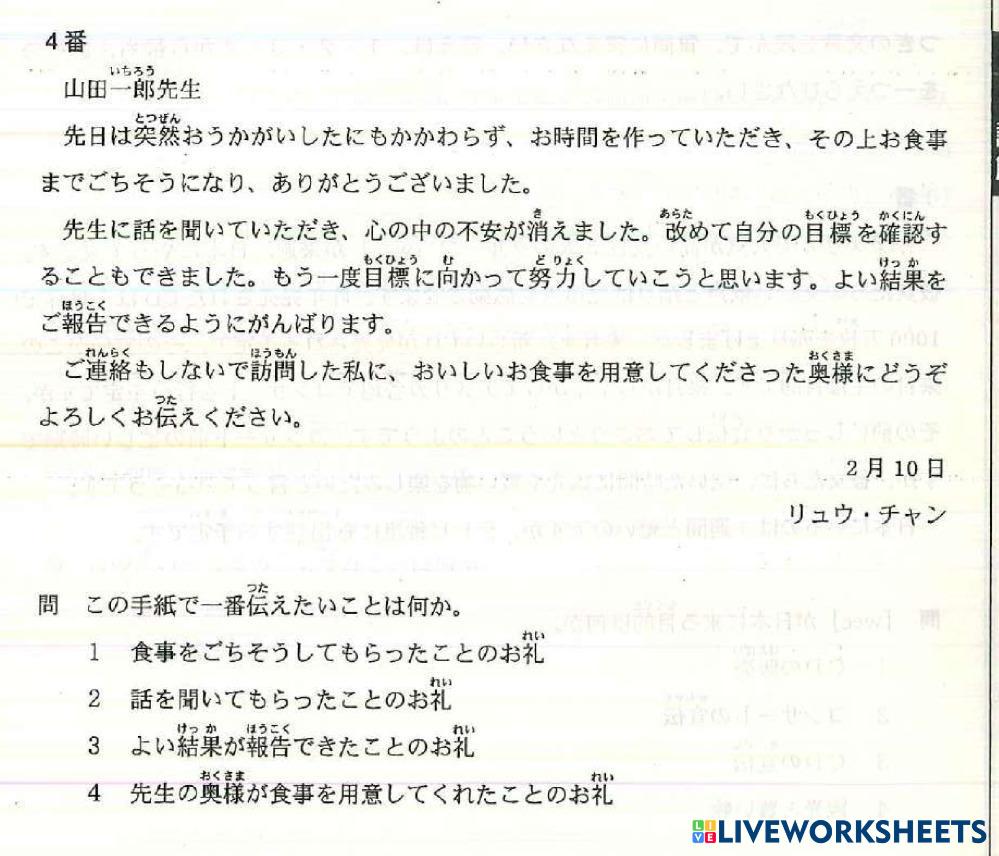 4番
山田一郎先生
いちろう
先日は突然おうかがいしたにもかかわらず、お時間を作っていただき、その上お食事
とつぜん
までごちそうになり、ありがとうございました。
先生に話を聞いていただき、心の中の不安が消えました。改めて自分の目標を確認す
き あらた もくひょう かくにん
ることもできました。もう一度目標に向かって努力していこうと思います。よい結果を
もくひょう む どりょく けっか
ご報告できるようにがんばります。
ほうこく
ご連絡もしないで訪問した私に、おいしいお食事を用意してくださった奥様にどうぞ
れんらく ほうもん おくさま
よろしくお伝えください。
つた
2月10日
リュウ・チャン
問 この手紙で一番伝えたいことは何か。
つた
1 食事をごちそうしてもらったことのお礼
れい
2 話を聞いてもらったことのお礼
れい
3 よい結果が報告できたことのお礼
けっか ほうこく れい
4 先生の奥様が食事を用意してくれたことのお礼
おくさま れい
LIVEWORKSHEETS